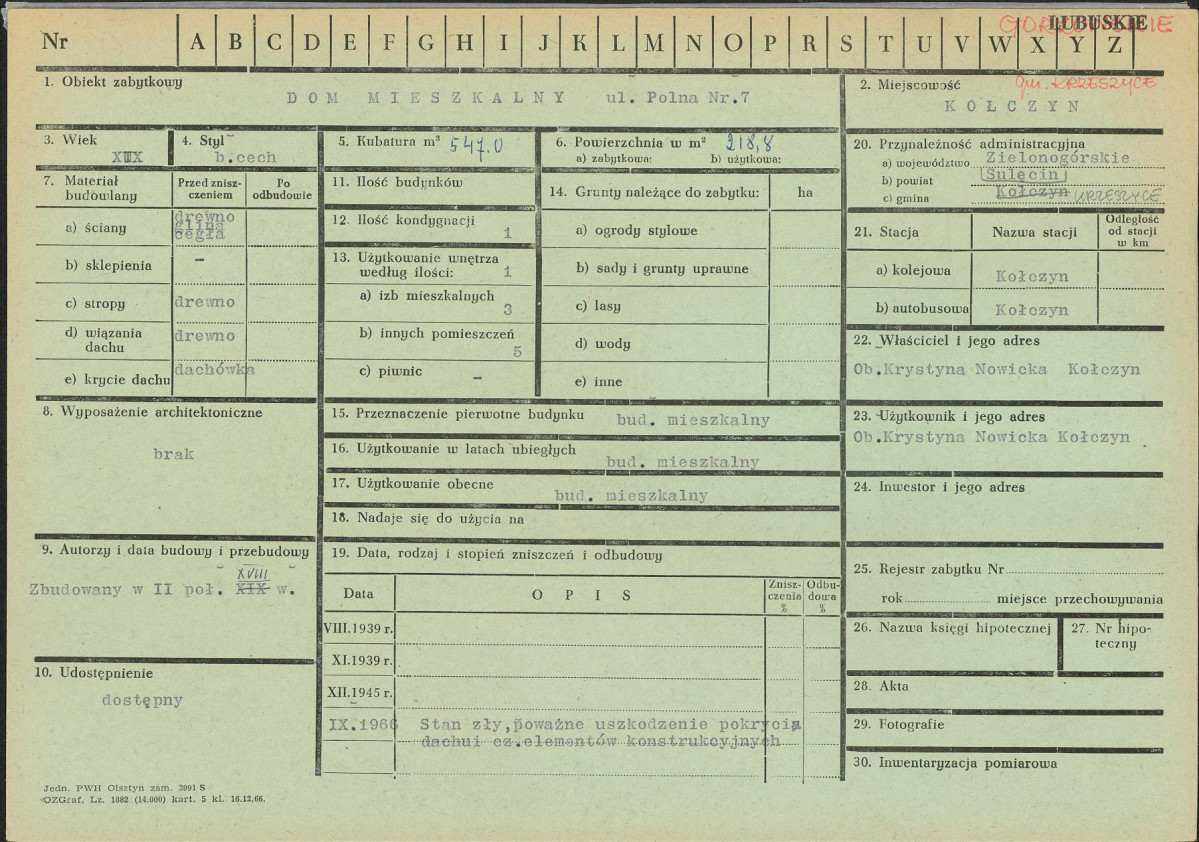 LUBUSKIE
GORZOWSKIE
Nr A B C D E F G H I J K L M N O P R S T U V W X Y Z
1. Obiekt zabytkowy
DOM MIESZKALNY ul. Polna Nr.7
2. Miejscowość gm. KRZESZYCE
KOŁCZYN
3. Wiek
4. Styl
b.cech
5. Kubatura m³ 547.0
6. Powierzchnia w m² 218,8
a) zabytkowa: b) użytkowa:
20. Przynależność administracyjna
a) województwo Zielonogórskie
b) powiat Sulęcin
c) gmina Kołczyn KRZESZYCE
7. Materiał budowlany
Przed znisz-
czeniem
Po
odbudowie
a) ściany drewno
glina
cegła
b) sklepienia –
c) stropy drewno
d) wiązania
dachu drewno
e) krycie dachu dachówka
11. Ilość budynków
12. Ilość kondygnacji
1
13. Użytkowanie wnętrza
według ilości: 1
a) izb mieszkalnych
3
b) innych pomieszczeń
5
c) piwnic –
14. Grunty należące do zabytku: ha
a) ogrody stylowe
b) sady i grunty uprawne
c) lasy
d) wody
e) inne
21. Stacja Nazwa stacji
Odległość
od stacji
w km
a) kolejowa Kołczyn
b) autobusowa Kołczyn
22. Właściciel i jego adres
Ob.Krystyna Nowicka Kołczyn
8. Wyposażenie architektoniczne
brak
15. Przeznaczenie pierwotne budynku bud. mieszkalny
16. Użytkowanie w latach ubiegłych
bud. mieszkalny
17. Użytkowanie obecne
bud. mieszkalny
18. Nadaje się do użycia na
23. Użytkownik i jego adres
Ob.Krystyna Nowicka Kołczyn
24. Inwestor i jego adres
9. Autorzy i data budowy i przebudowy
XVIII
Zbudowany w II poł. XIX w.
19. Data, rodzaj i stopień zniszczeń i odbudowy
Data OPIS
Znisz-
czenia
%
Odbu-
dowa
%
VIII.1939 r.
XI.1939 r.
XII.1945 r.
IX.1966 Stan zły,poważne uszkodzenie pokrycia
dachui cz.elementów konstrukcyjnych
25. Rejestr zabytku Nr
rok miejsce przechowywania
26. Nazwa księgi hipotecznej
27. Nr hipo-
teczny
10. Udostępnienie
dostępny
28. Akta
29. Fotografie
30. Inwentaryzacja pomiarowa
Jedn. PWH Olsztyn zam. 3991 S
OZGraf. Lz. 1882 (14.000) kart. 5 kl. 16.12.66.